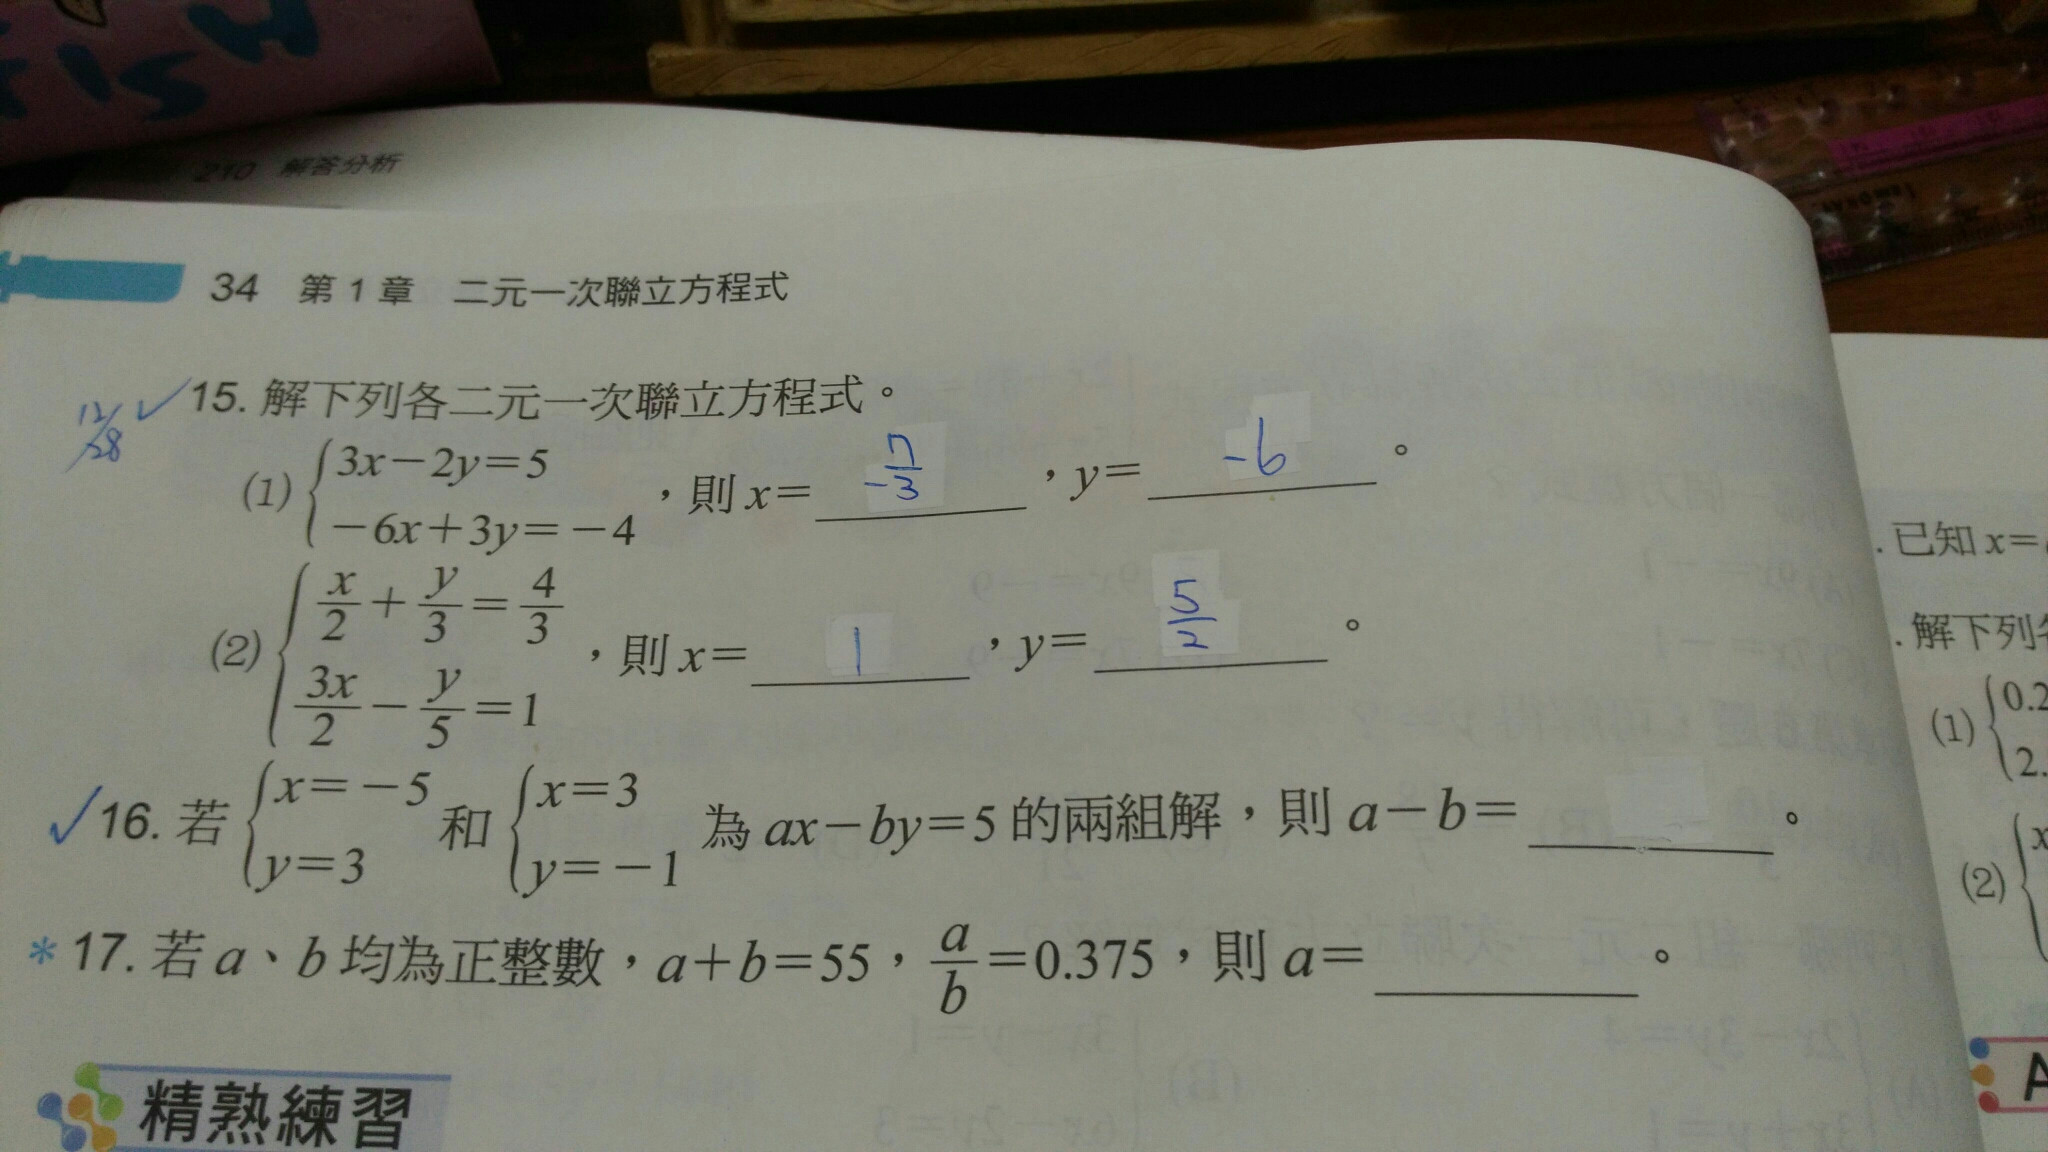 210 解答分析
34 第1章 二元一次聯立方程式
12/28 ✓ 15. 解下列各二元一次聯立方程式。
(1) { 3x−2y=5
−6x+3y=−4 ，則 x= −7/3 ，y= −6 。
(2) { x/2+y/3=4/3
3x/2−y/5=1 ，則 x= 1 ，y= 5/2 。
✓ 16. 若 { x=−5 y=3 和 { x=3 y=−1 為 ax−by=5 的兩組解，則 a−b= 。
* 17. 若 a、b 均為正整數，a+b=55，a/b=0.375，則 a= 。
精熟練習
. 已知 x=
. 解下列
(1) { 0.2
2.
(2) { x
A